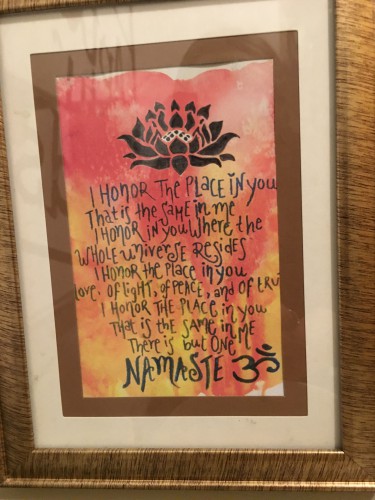 I HONOR THE PLACE IN YOU
That is the SAME in me
I HONOR in YOU Where the
WHOLE UNIVERSE RESIDES
I HONOR the PLACE in you
love, OF LIGHT, OF PEACE, AND OF TRU
I HONOR THE PLACE in you
THAT IS THE SAME IN ME
There is but ONE
NAMASTE ॐ